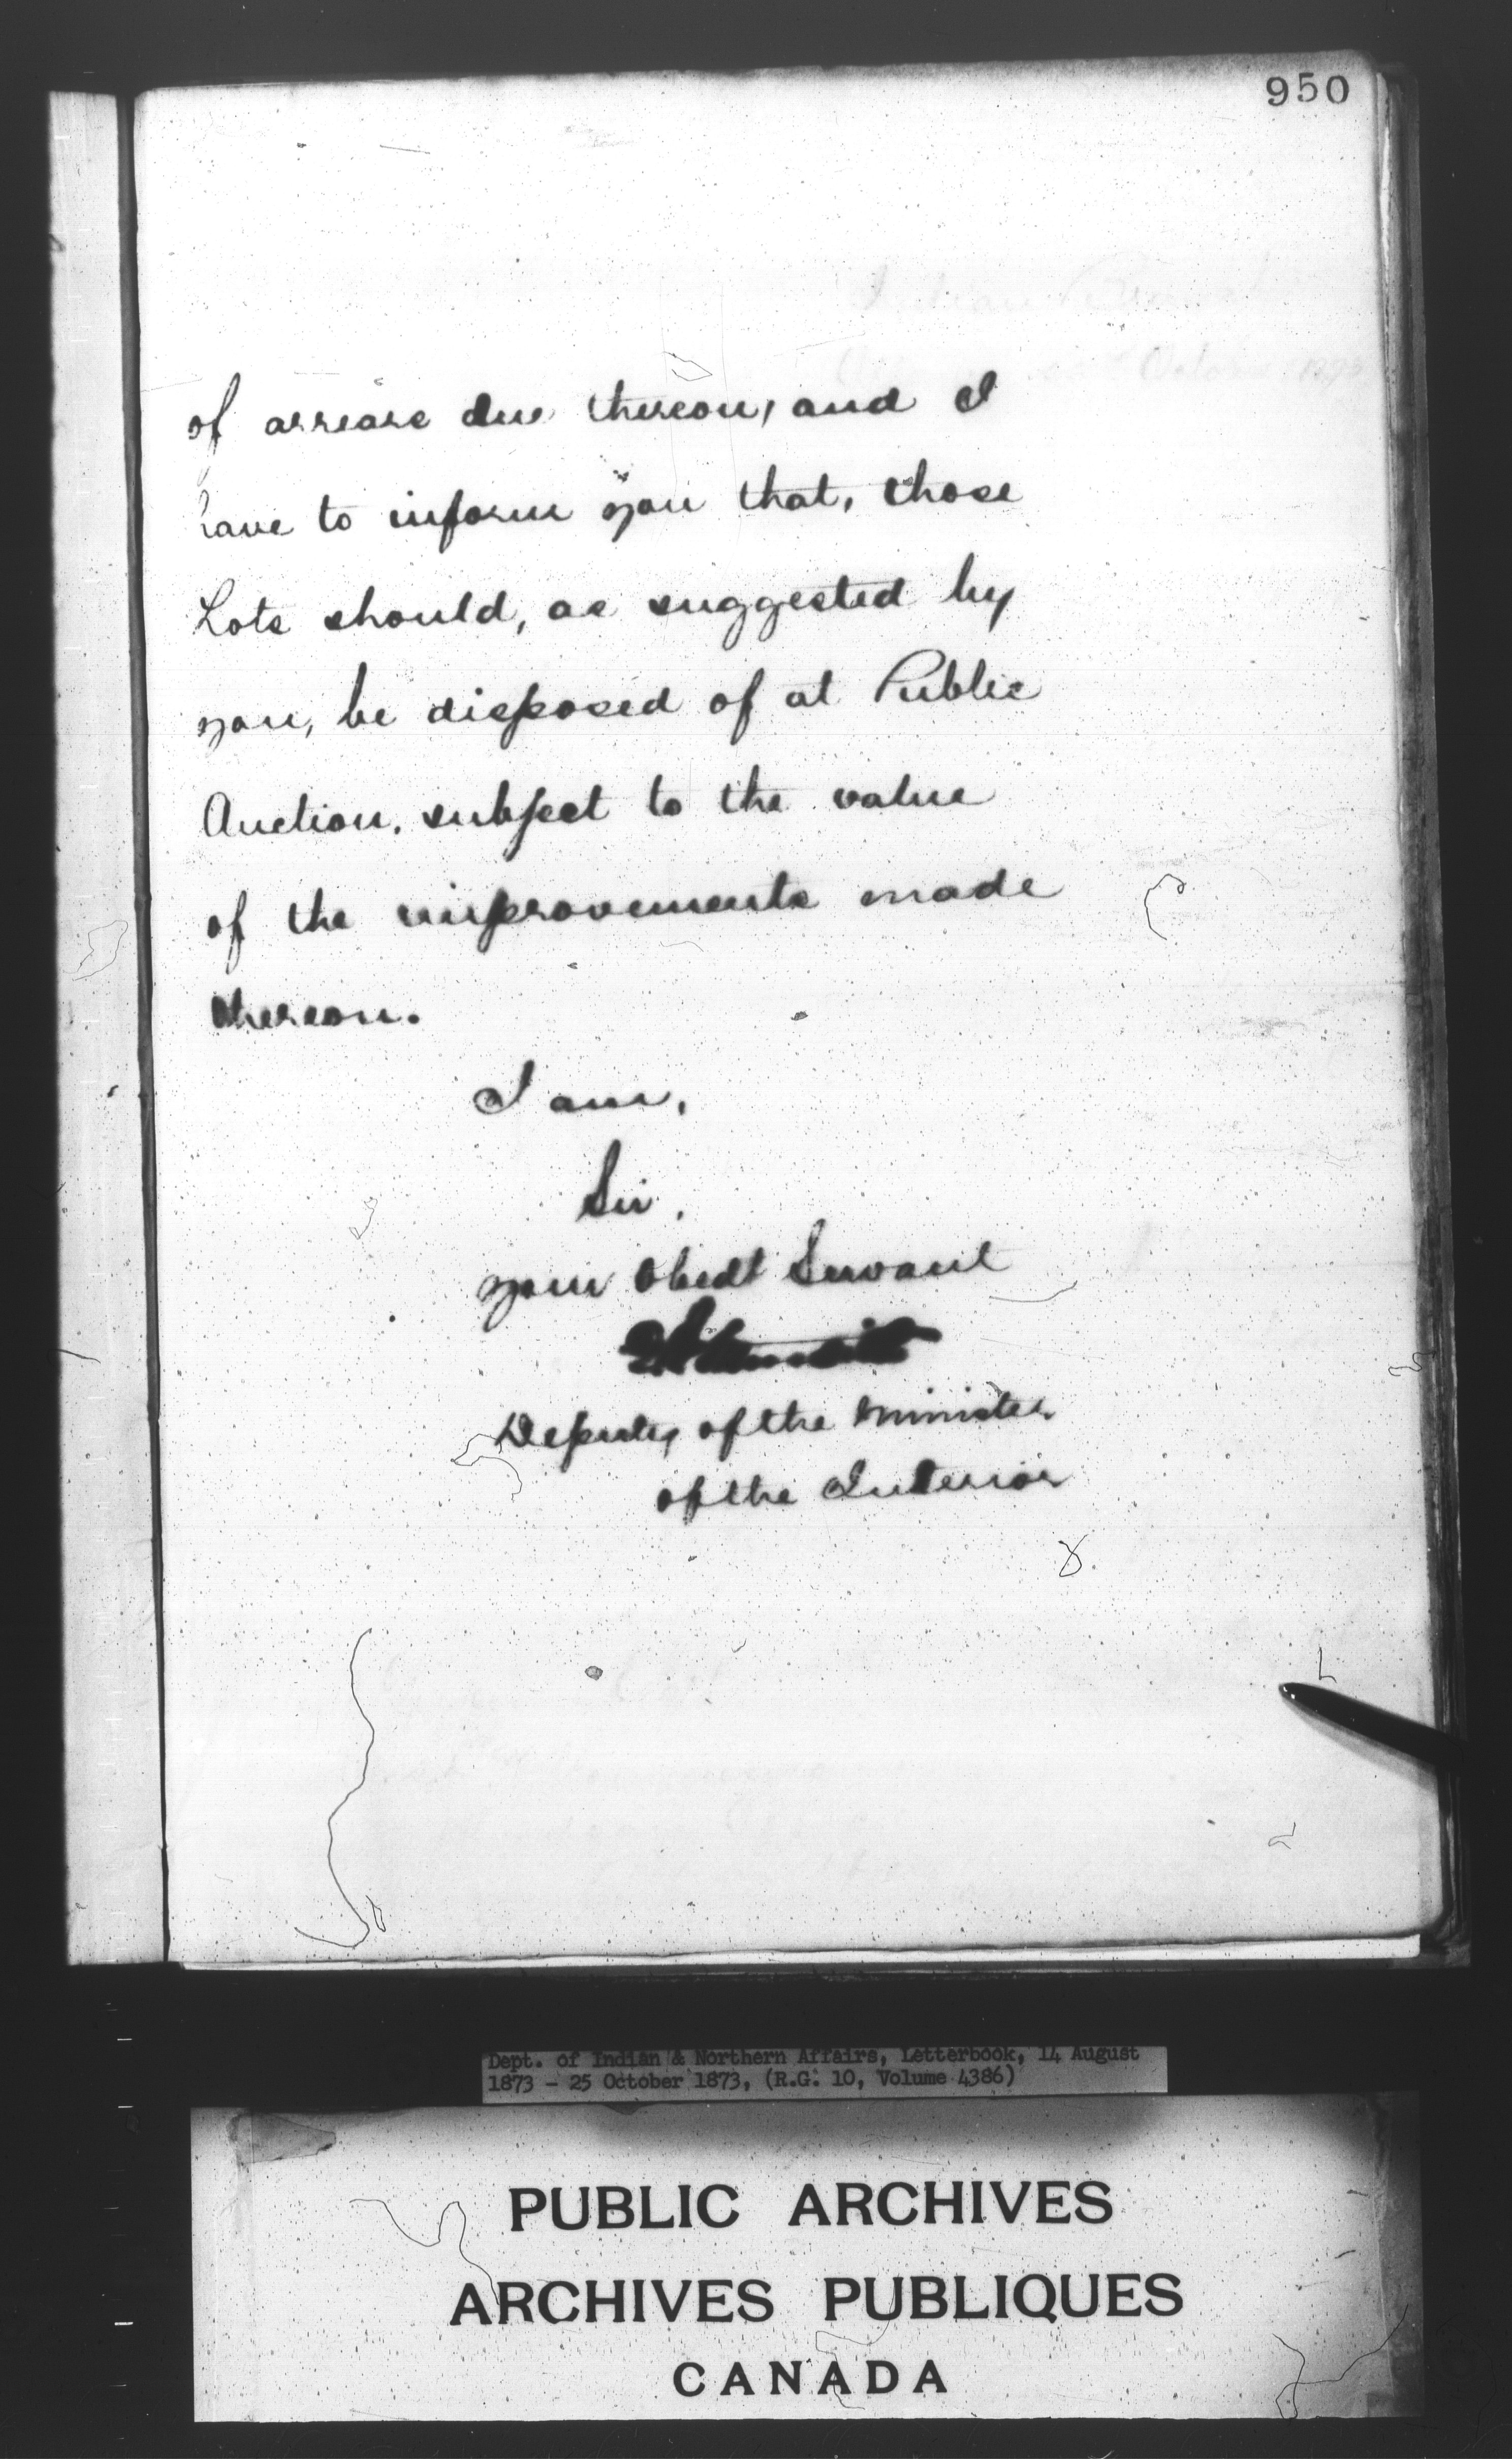 950
of arrears due thereon, and I
have to inform you that, those
Lots should, as suggested by
you, be disposed of at Public
Auction, subject to the value
of the improvements made
thereon.
I am,
Sir,
your Obedt Servant
Deputy of the Minister
of the Interior
Dept. of Indian & Northern Affairs, Letterbook, 14 August
1873 - 25 October 1873, (R.G. 10, Volume 4386)
PUBLIC ARCHIVES
ARCHIVES PUBLIQUES
CANADA